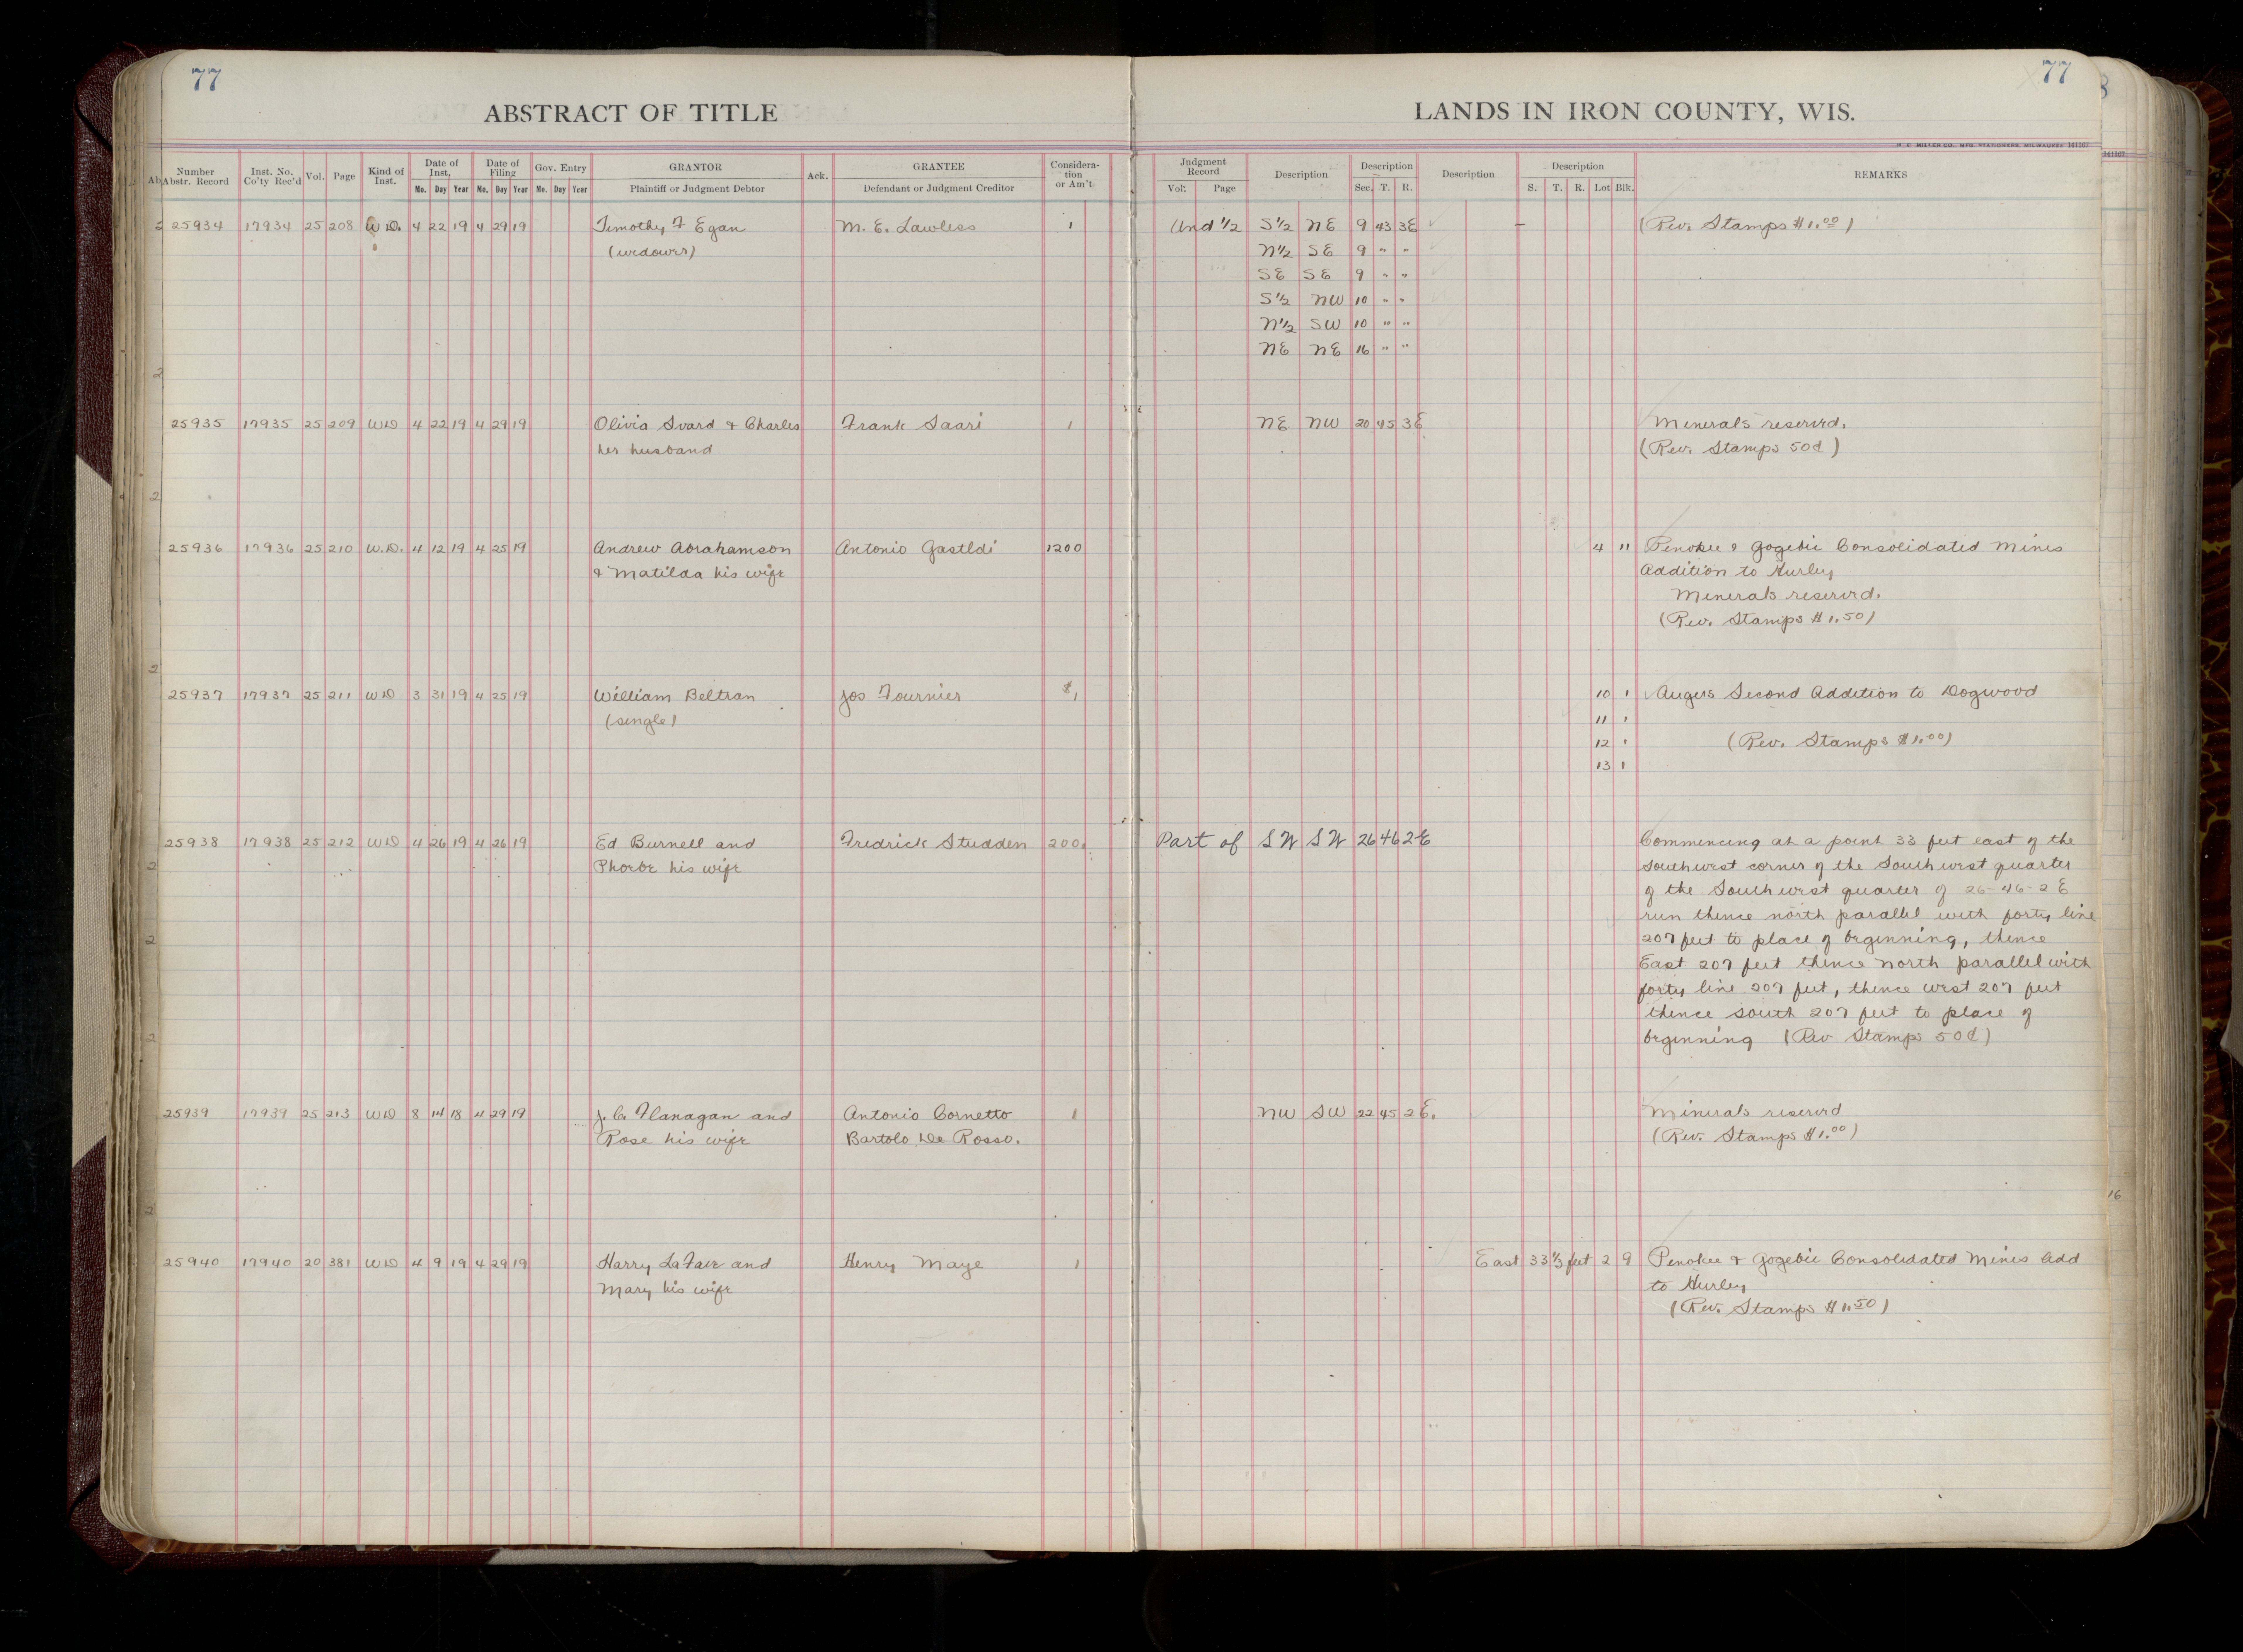 77
77
ABSTRACT OF TITLE
LANDS IN IRON COUNTY, WIS.
H. C. MILLER CO., MFG. STATIONERS, MILWAUKEE 141107
Number Abstr. Record | Inst. No. Co'ty Rec'd | Vol. | Page | Kind of Inst. | Date of Inst. Mo. Day Year | Date of Filing Mo. Day Year | Gov. Entry Mo. Day Year | GRANTOR Plaintiff or Judgment Debtor | Ack. | GRANTEE Defendant or Judgment Creditor | Consideration or Am't | Judgment Record Vol. Page | Description | Description Sec. T. R. | Description | Description S. T. R. Lot Blk. | REMARKS
25934 17934 25 208 W.D. 4 22 19 4 29 19 Timothy F Egan M. E. Lawless 1 Und 1/2 S1/2 NE 9 43 3E (Rev. Stamps $1.00)
(widower) N1/2 SE 9 " "
SE SE 9 " "
S1/2 NW 10 " "
N1/2 SW 10 " "
NE NE 16 " "
25935 17935 25 209 WD 4 22 19 4 29 19 Olivia Svard & Charles Frank Saari 1 NE NW 20 45 3E Minerals reserved.
her husband (Rev. Stamps 50¢)
25936 17936 25 210 W.D. 4 12 19 4 25 19 Andrew Abrahamson Antonio Gastldi 1200 4 11 Penokee & Gogebic Consolidated Mines
& Matilda his wife Addition to Hurley
Minerals reserved.
(Rev. Stamps $1.50)
25937 17937 25 211 WD 3 31 19 4 25 19 William Beltran Jos Fournier $1 10 1 Augers Second Addition to Dogwood
(single) 11 1
12 1 (Rev. Stamps $1.00)
13 1
25938 17938 25 212 WD 4 26 19 4 26 19 Ed Burnell and Fredrick Studden 200. Part of SW SW 26 46 2E Commencing at a point 33 feet east of the
Phoebe his wife southwest corner of the Southwest quarter
of the Southwest quarter of 26-46-2E
run thence north parallel with forty line
207 feet to place of beginning, thence
East 207 feet thence north parallel with
forty line 207 feet, thence west 207 feet
thence south 207 feet to place of
beginning (Rev Stamps 50¢)
25939 17939 25 213 WD 8 14 18 4 29 19 J. C. Flanagan and Antonio Cornetto 1 NW SW 22 45 2E. Minerals reserved
Rose his wife Bartolo De Rosso. (Rev. Stamps $1.00)
25940 17940 20 381 WD 4 9 19 4 29 19 Harry LaFave and Henry Maye 1 East 33 1/3 feet 2 9 Penokee & Gogebic Consolidated Mines Add
Mary his wife to Hurley
(Rev. Stamps $1.50)